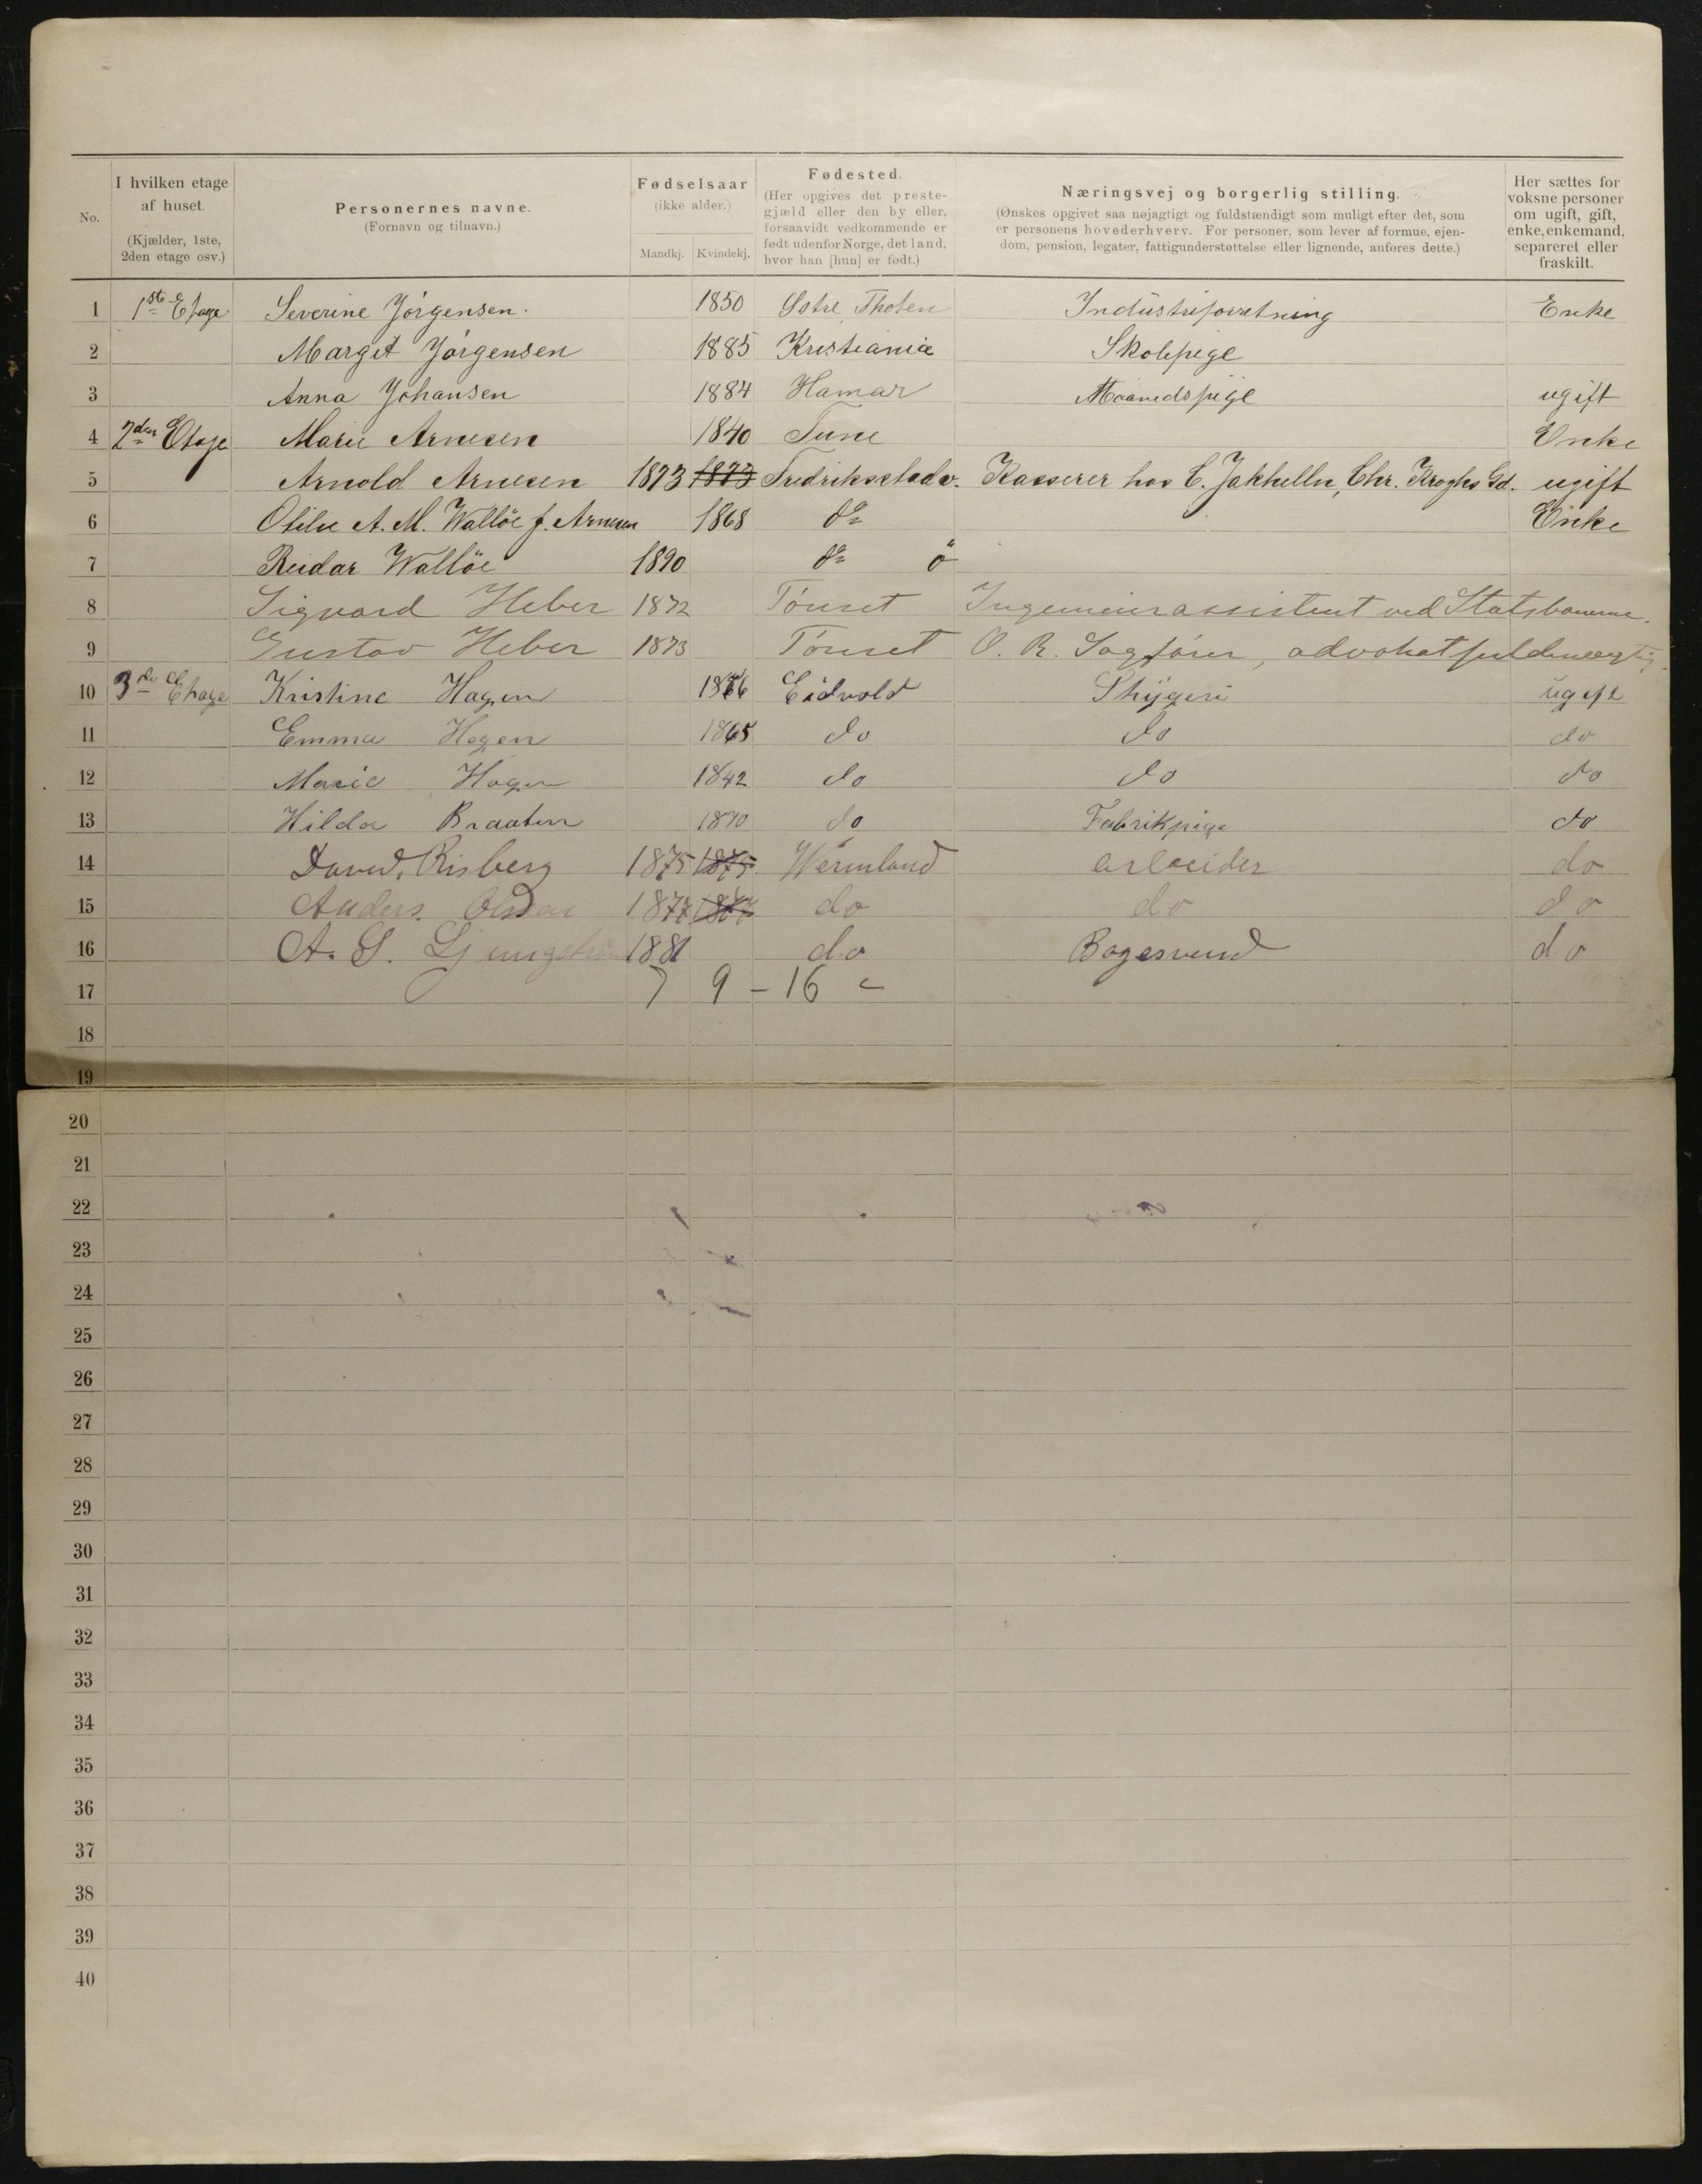 No. I hvilken etage af huset. (Kjælder, 1ste, 2den etage osv.) Personernes navne. (Fornavn og tilnavn.) Fødselsaar (ikke alder.) Mandkj. Kvindekj. Fødested. (Her opgives det prestegjæld eller den by eller, forsaavidt vedkommende er født udenfor Norge, det land, hvor han [hun] er født.) Næringsvej og borgerlig stilling. (Ønskes opgivet saa nøjagtigt og fuldstændigt som muligt efter det, som er personens hovederhverv. For personer, som lever af formue, ejendom, pension, legater, fattigunderstøttelse eller lignende, anføres dette.) Her sættes for voksne personer om ugift, gift, enke, enkemand, separeret eller fraskilt.
1 1ste Etage Severine Jørgensen. 1850 Østre Thoten Industriforretning Enke
2 Margit Jørgensen 1885 Kristiania Skolepige
3 Anna Johansen 1884 Hamar Maanedspige ugift
4 2den Etage Marie Arnesen 1840 Tune Enke
5 Arnold Arnesen 1873 1873 Fredriksstad Kasserer hos C. Jakhelln, Chr. Kroghs Gd. ugift
6 Otilie A. M. Wallöe f. Arnesen 1868 do Enke
7 Reidar Wallöe 1890 do ö
8 Sigvard Heber 1872 Tønset Ingeniørassistent ved Statsbanerne.
9 Gustav Heber 1873 Tønset O. R. Sagfører, advokatfuldmægtig.
10 3die Etage Kristine Hagen 1866 Eidvold Skygeri ugift
11 Emma Hagen 1865 do do do
12 Marie Hagen 1842 do do do
13 Hilda Braaten 1870 do Fabrikpige do
14 David Risberg 1875 1875 Wermland arbeider do
15 Anders 1877 do do do
16 A. S. Ljungström 1881 do Bogesvend do
17 7 9 - 16
18
19
20
21
22
23
24
25
26
27
28
29
30
31
32
33
34
35
36
37
38
39
40